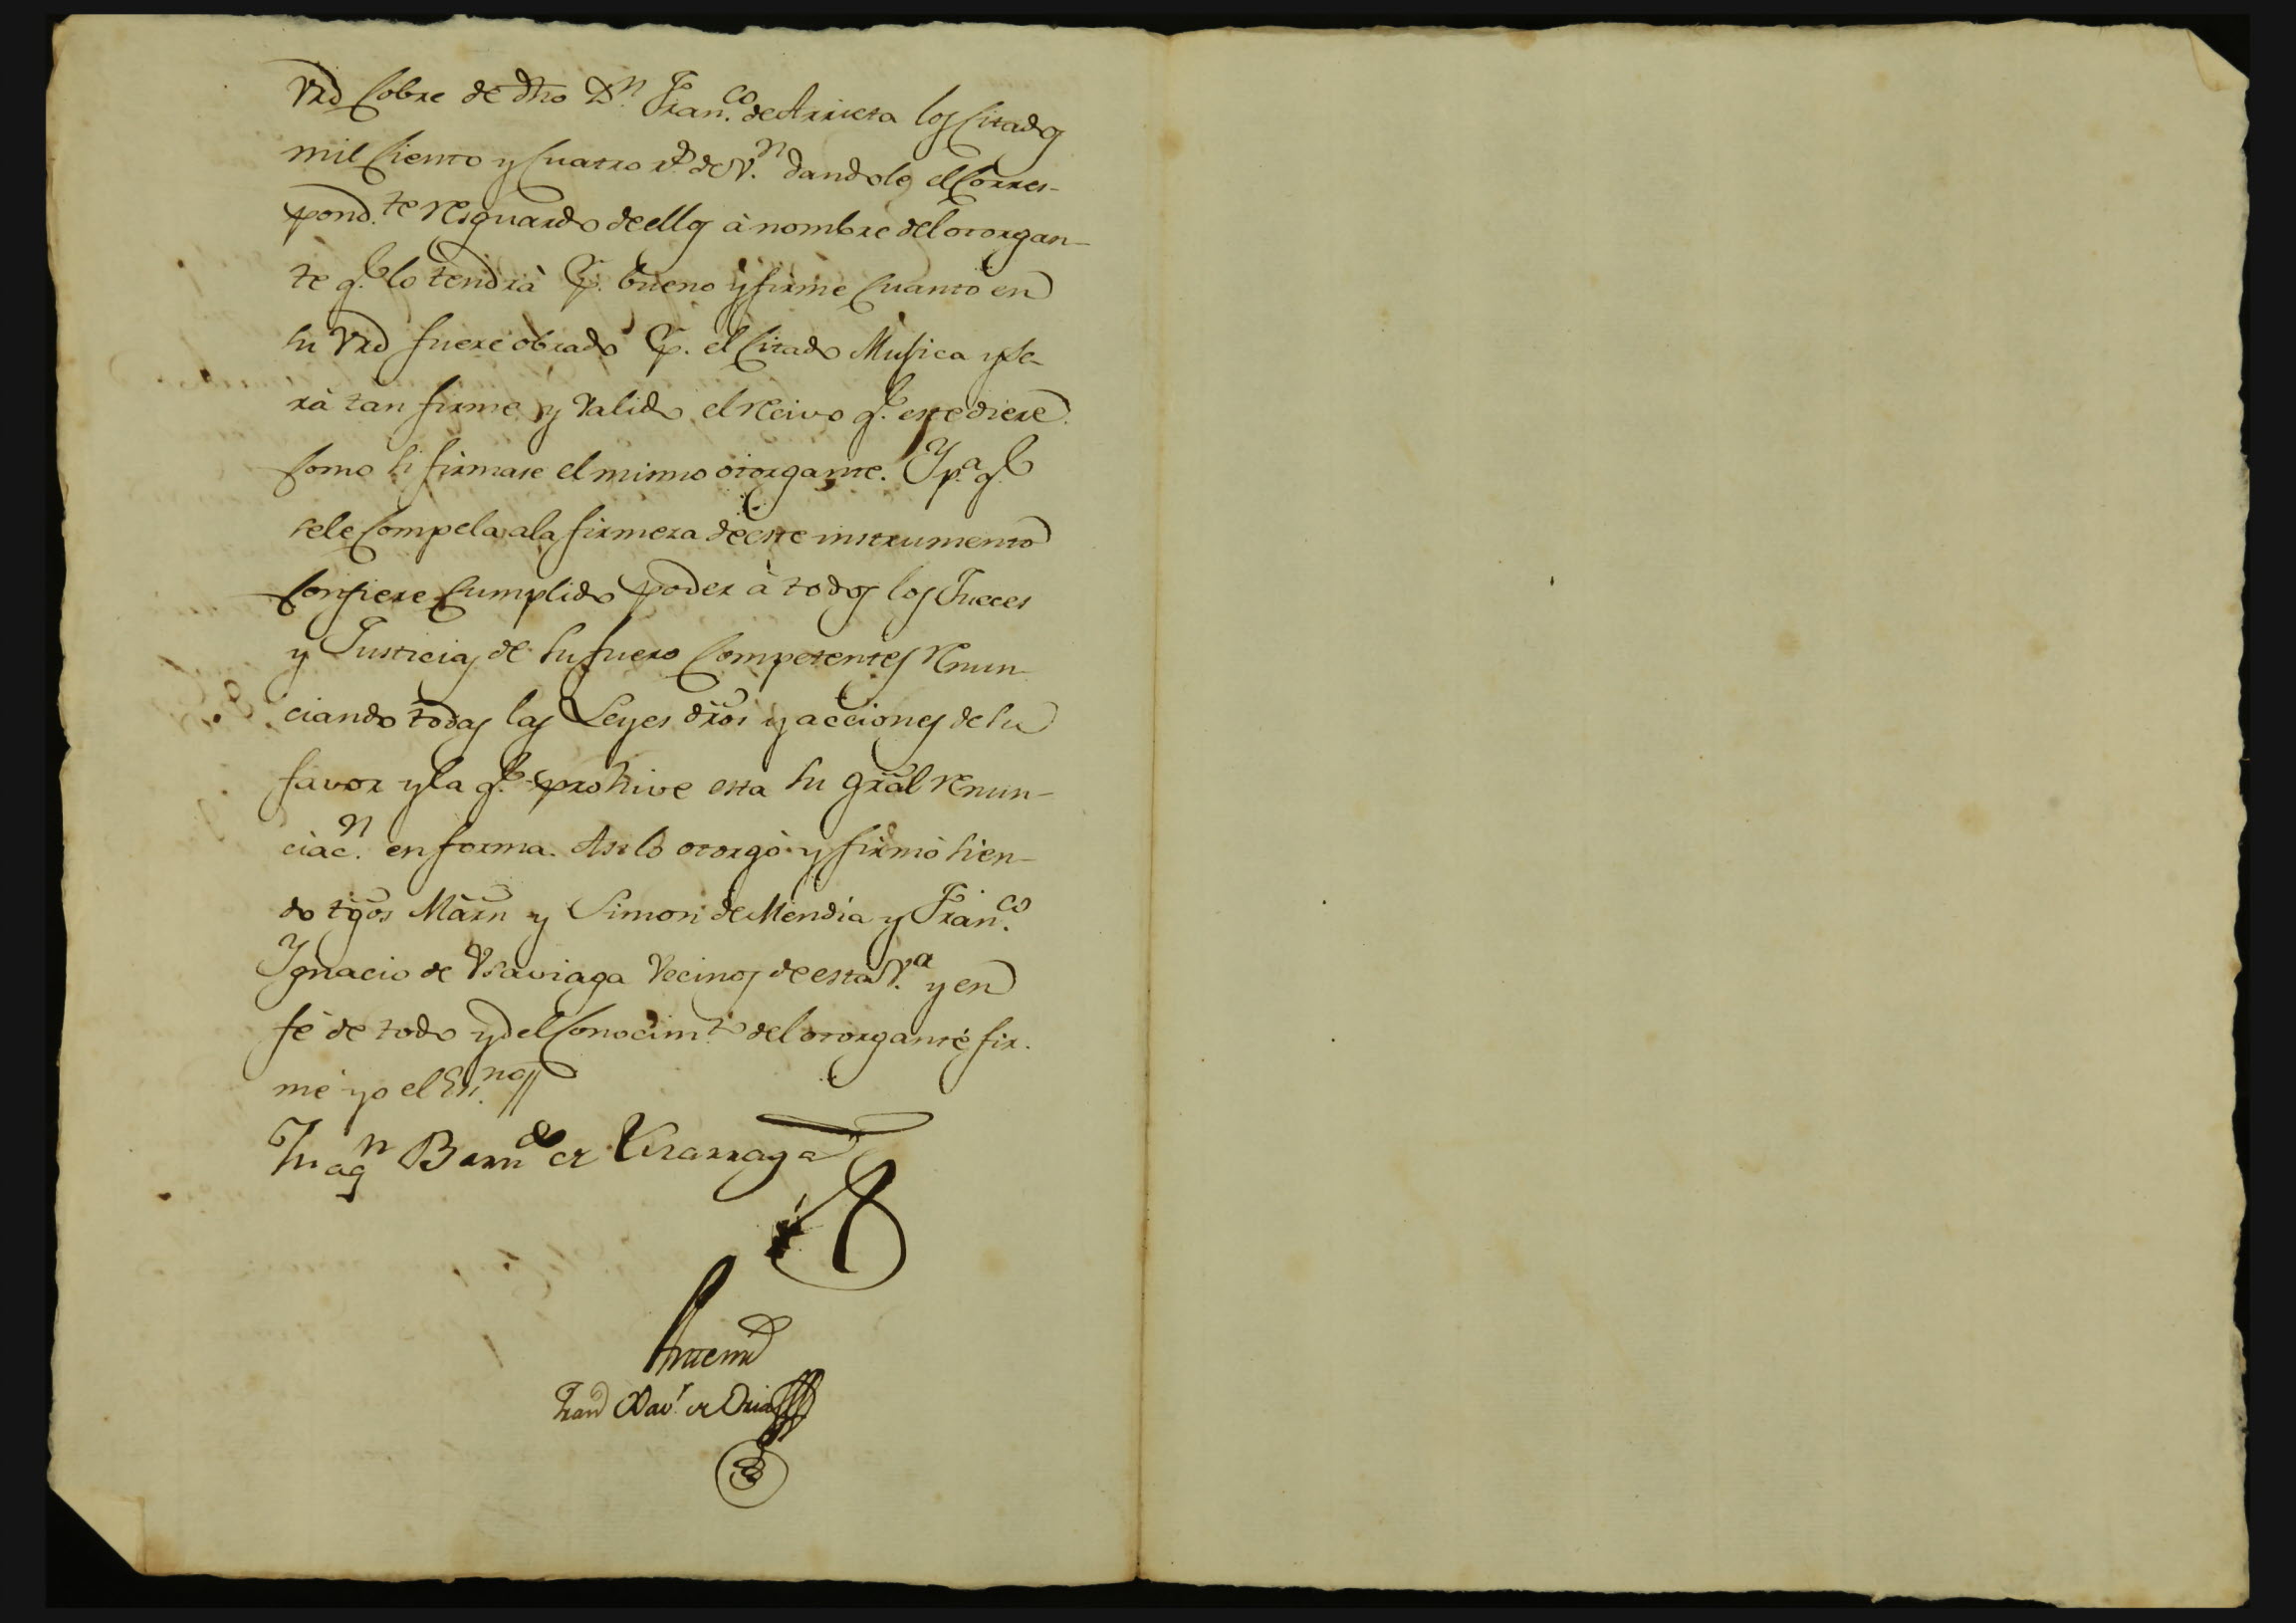 Vrd cobre de dho Dn. Franco. de Arrieta los citados
mil ciento y cuatro rs. de Vn. dandole el corres-
pondte. resguardo de ellos à nombre del otorgan-
te q. lo tendrà p. bueno y firme cuanto en
su Vrd fuere obrado p. el citado Musica y se-
rà tan firme y valido el recivo q. este diere
como si firmase el mismo otorgante. Y pa. q.
se le compela a la firmeza de este instrumento
confiere cumplido poder à todos los Jueces
y Justicias de su fuero competentes renun-
ciando todas las Leyes dros y acciones de su
favor y la q. prohive esta su gral renun-
ciacn. en forma. Asi lo otorgò y firmò sien-
do tgos Marn y Simon de Mendia y Franco.
Ygnacio de Vsaviaga vecinos de esta Va. y en
fé de todo y del conocimto. del otorgante fir-
mé yo el Esno.
Juaqn Barndo de Lizarraga
Antemi
Franco Xavr. de Oria